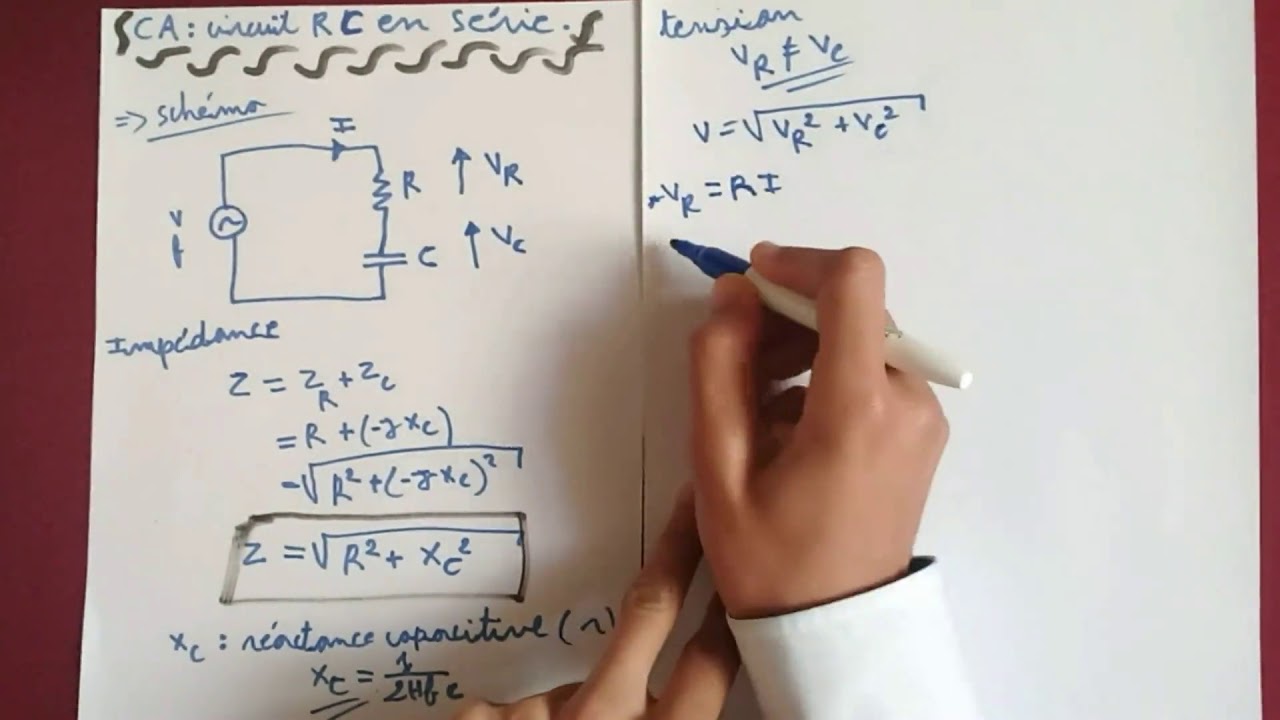 CA : circuit RC en série.
=> schéma
I
R
V_R
V
C
V_C
Impédance
Z = Z_R + Z_C
= R + (-j x_C)
= √(R² + (-j x_C)²)
Z = √(R² + x_C²)
x_C : réactance capacitive (Ω)
x_C = 1/(2πfc)
tension
V_R ≠ V_C
V = √(V_R² + V_C²)
* V_R = R I